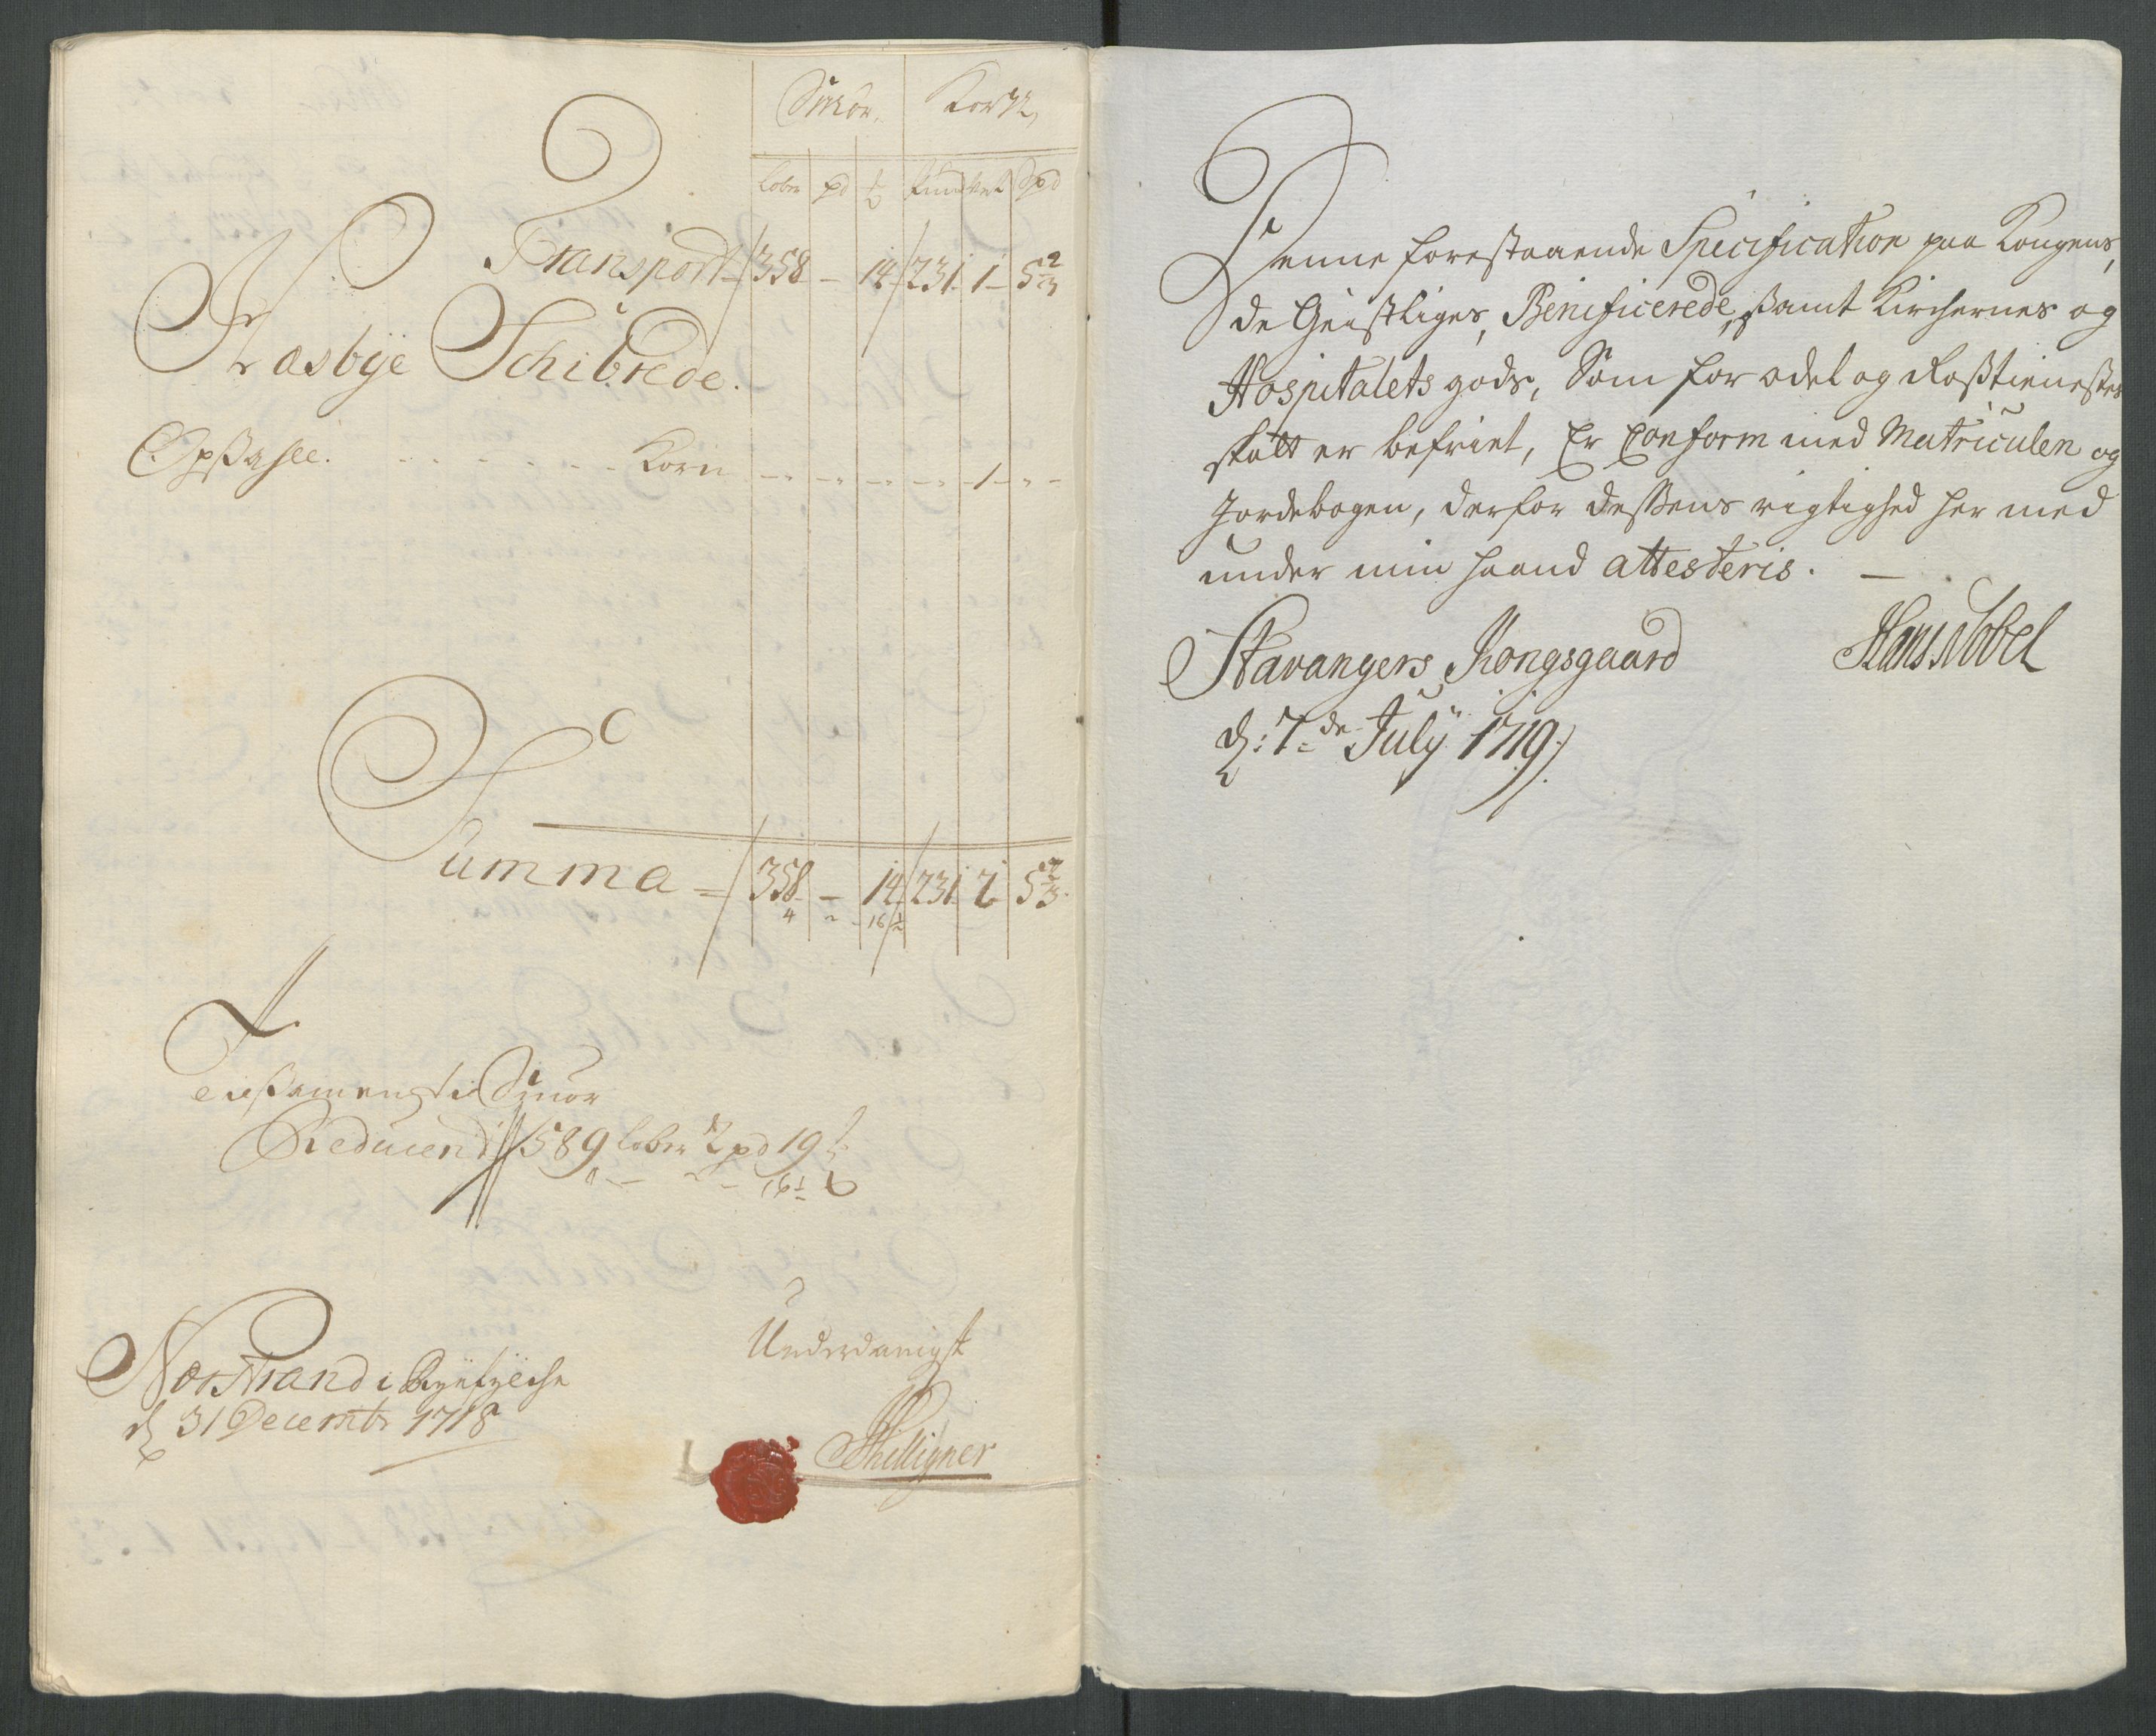 Smör. Korn,
Löber pd ℔ Tund Vet Spd
Transport 358 - 14 231 1 5 2/3
Hasbÿe Schibrede.
Opsahll. Korn - - - - 1 - -
Summa = 358 - 14 231 2 5 2/3
4 - 16 1/2
Er tilsammens til Smör
Reducerid 589 löber 2 pd 19 ℔
16 1/2
Norstrand i Ryefylche
d 31 Decembr 1718
Underdanigst
Denne forestaaende Specification paa Kongens,
de Geistliges, Benificerede, samt Kirchernes og
Hospitalets gods, Som for odel og Roßtieneste
skatt er befriet, Er Conform med Matriculen og
Jordebogen, derfor deßens rigtighed her med
under min haand attesteris. —
Stavangers Kongsgaard
Hans Nobel
d: 7de Julÿ 1719